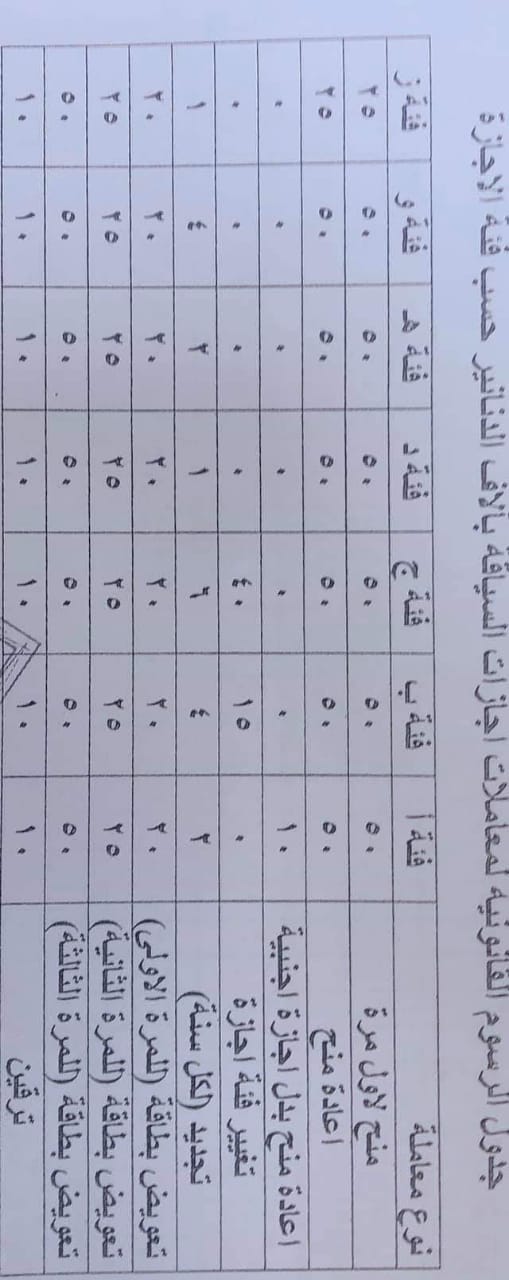 جدول الرسوم القانونيه لمعاملات اجازات السياقة بألاف الدنانير حسب فئة الاجازة
نوع معاملة فئة أ فئة ب فئة ج فئة د فئة هـ فئة و فئة ز
منح لاول مرة ٥٠ ٥٠ ٥٠ ٥٠ ٥٠ ٥٠ ٢٥
اعادة منح ٥٠ ٥٠ ٥٠ ٥٠ ٥٠ ٥٠ ٢٥
اعادة منح بدل اجازة اجنبية ١٠ ٠ ٠ ٠ ٠ ٠ ٠
تغيير فئة اجازة ٠ ١٥ ٤٠ ٠ ٠ ٠ ٠
تجديد (لكل سنة) ٢ ٤ ٦ ١ ٢ ٤ ١
تعويض بطاقة (للمرة الاولى) ٢٠ ٢٠ ٢٠ ٢٠ ٢٠ ٢٠ ٢٠
تعويض بطاقة (للمرة الثانية) ٢٥ ٢٥ ٢٥ ٢٥ ٢٥ ٢٥ ٢٥
تعويض بطاقة (للمرة الثالثة) ٥٠ ٥٠ ٥٠ ٥٠ ٥٠ ٥٠ ٥٠
ترقين ١٠ ١٠ ١٠ ١٠ ١٠ ١٠ ١٠